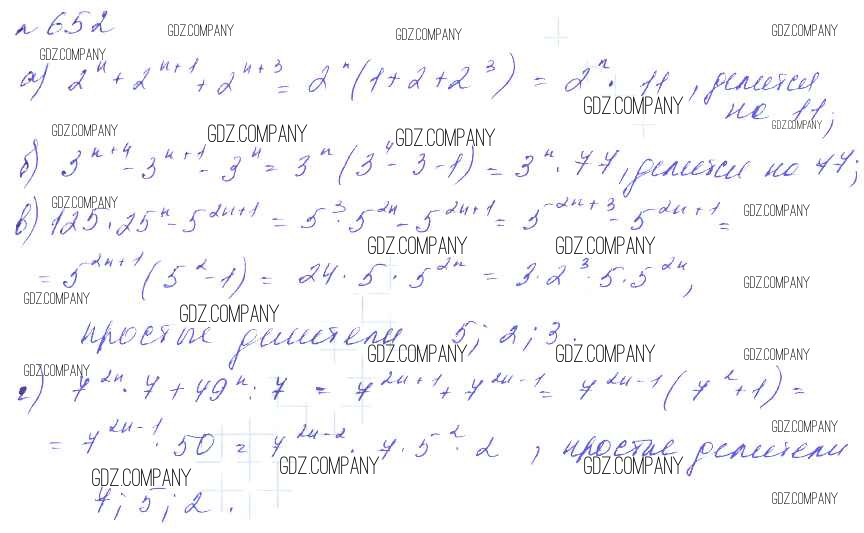 № 652
GDZ.COMPANY GDZ.COMPANY GDZ.COMPANY
GDZ.COMPANY
а) 2^n + 2^{n+1} + 2^{n+3} = 2^n (1 + 2 + 2^3) = 2^n · 11, делится
GDZ.COMPANY
на 11;
GDZ.COMPANY
GDZ.COMPANY GDZ.COMPANY GDZ.COMPANY
б) 3^{n+4} - 3^{n+1} - 3^n = 3^n (3^4 - 3 - 1) = 3^n · 77, делится на 77;
GDZ.COMPANY GDZ.COMPANY
в) 125 · 25^n - 5^{2n+1} = 5^3 · 5^{2n} - 5^{2n+1} = 5^{2n+3} - 5^{2n+1} =
GDZ.COMPANY GDZ.COMPANY
= 5^{2n+1} (5^2 - 1) = 24 · 5 · 5^{2n} = 3 · 2^3 · 5 · 5^{2n},
GDZ.COMPANY GDZ.COMPANY GDZ.COMPANY
простые делители 5; 2; 3.
GDZ.COMPANY GDZ.COMPANY GDZ.COMPANY
GDZ.COMPANY
г) 7^{2n} · 7 + 49^n : 7 = 7^{2n+1} + 7^{2n-1} = 7^{2n-1} (7^2 + 1) =
GDZ.COMPANY
= 7^{2n-1} · 50 = 7^{2n-2} · 7 · 5^2 · 2, простые делители
GDZ.COMPANY GDZ.COMPANY GDZ.COMPANY
7; 5; 2.
GDZ.COMPANY